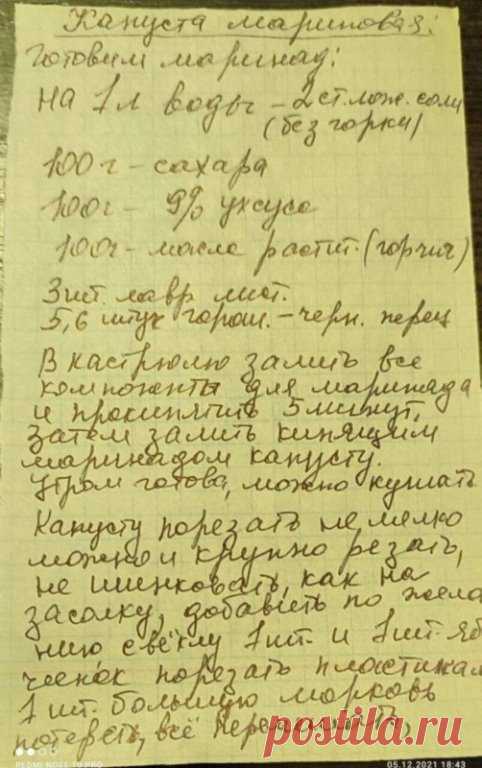 Капуста маринован:
Готовим маринад:
На 1л воды - 2 ст. лож. соли
(без горки)
100г - сахара
100г - 9% уксуса
100г - масла растит. (горчич)
3 шт. лавр. лист.
5,6 штук горош. - черн. перец
В кастрюлю залить все
компоненты для маринада
и прокипятить 5 минут,
затем залить кипящим
маринадом капусту.
Утром готова, можно кушать
Капусту порезать не мелко
можно и крупно резать,
не шинковать, как на
засолку, добавить по жела
нию свёклу 1шт. и 1 шт.
чеснок порезать пластикам
1 шт. большую морковь
потереть, всё перемешать,
postila.ru
REDMI NOTE 10 PRO
05.12.2021 18:43